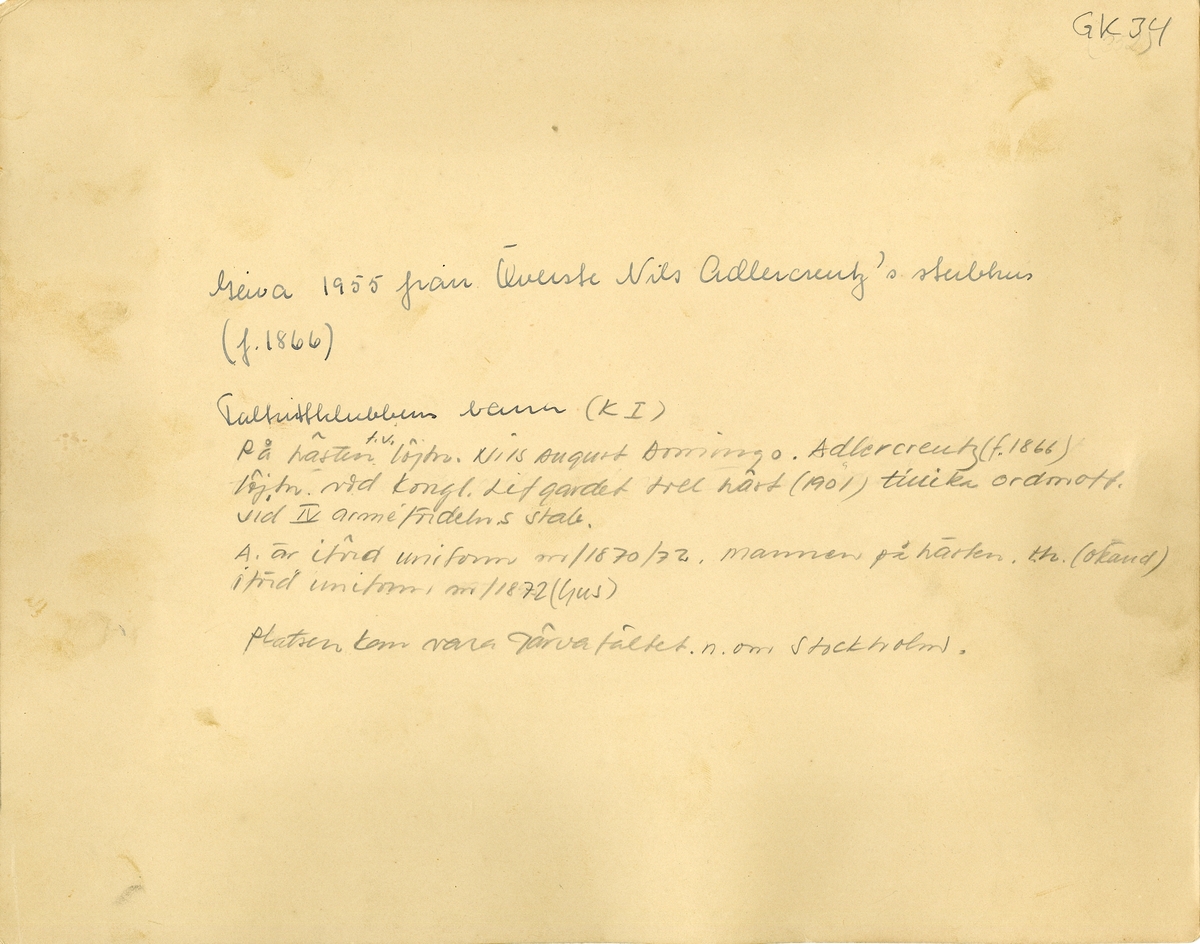 GK 34
Gåva 1955 från Överste Nils Adlercreutz's sterbhus
(f. 1866)
Fältrittklubbens bana (K I)
På hästen t.v. löjtn. Nils August Domingo. Adlercreutz (f. 1866)
löjtn. vid Kongl. Lifgardet till häst (1901) tillika ordinoff.
vid IV arméfördelns stab.
A. är iförd uniform m/1870/72. Mannen på hästen. th. (okänd)
iförd uniform, m/1872
Platsen kan vara Järvafältet. n. om Stockholm.